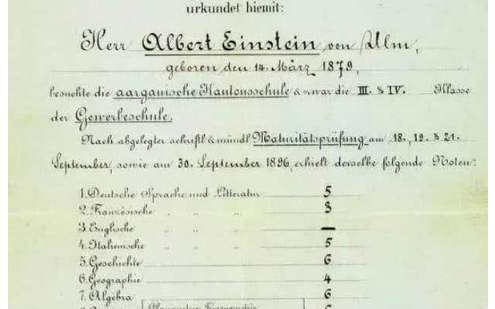 urkundet hiemit:
Herr Albert Einstein von Ulm,
geboren den 14. März 1879,
besuchte die aargauische Kantonsschule & zwar die III. & IV. Klasse
der Gewerbeschule.
Nach abgelegter schriftl. & mündl. Maturitätsprüfung am 18., 19. & 21.
September, sowie am 30. September 1896, erhielt derselbe folgende Noten:
1. Deutsche Sprache und Litteratur 5
2. Französische " " " 3
3. Englische " " " —
4. Italienische " " " 5
5. Geschichte 6
6. Geographie 4
7. Algebra 6